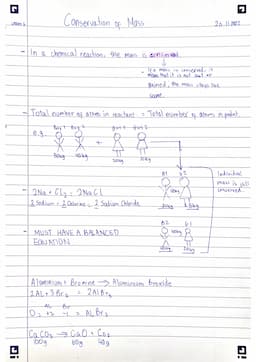 Conservation of Mass
20.11.2022
- In a chemical reaction, the mass is conserved.
- If a mass is conserved it
means that it is not lost or
gained, the mass stays the
same.
- Total number of atoms in reactant = Total number of atoms in product.
e.g. Boy 1 Boy 2 Girl 1 Girl 2
+
50kg 45kg 20kg 30kg
B1 G2
Individual
mass is still
conserved
- 2Na + Cl2 → 2NaCl
2 Sodium + 2 Chlorine → 2 Sodium Chloride
B2 G1
- MUST HAVE A BALANCED
EQUATION
Aluminium + Bromine → Aluminium Bromide
2Al + 3Br2 = 2AlBr3
Al Br
= AlBr3
CaCO3 → CaO + CO2
100g 60g 40g